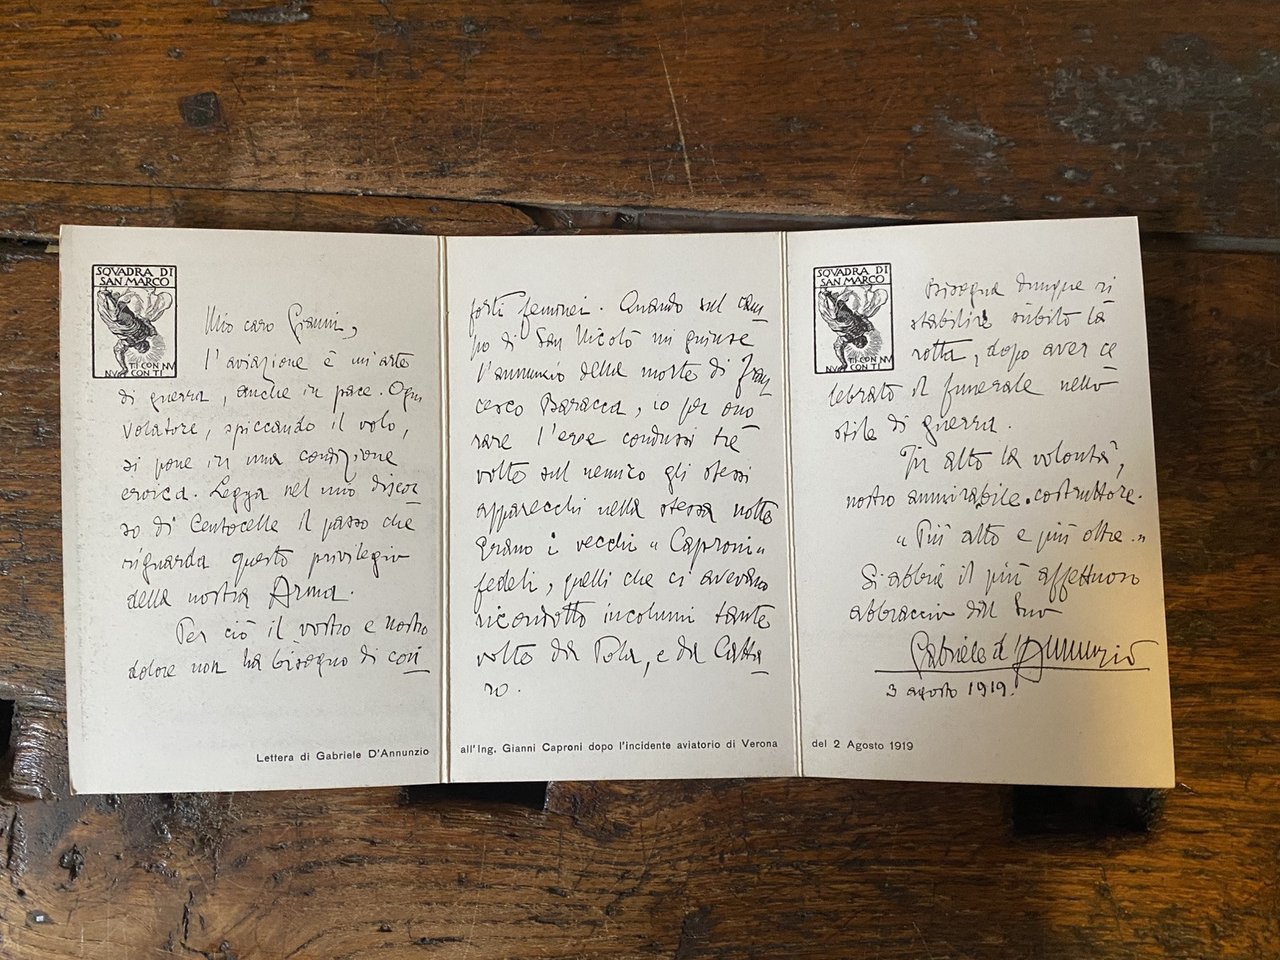 SQVADRA DI
SAN MARCO
TI CON NV
NV CON TI
Mio caro Gianni,
l'aviazione è un'arte
di guerra, anche in pace. Ogni
volatore, spiccando il volo,
si pone in una condizione
eroica. Legga nel mio discor
so di Centocelle il passo che
riguarda questo privilegio
della nostra Arma.
Per ciò il vostro e nostro
dolore non ha bisogno di con
forti feminei. Quando sul cam
po di San Nicolò mi giunse
l'annunzio della morte di Fran
cesco Baracca, io per ono
rare l'eroe condussi tre
volte sul nemico gli stessi
apparecchi nella stessa notte
Erano i vecchi "Caproni"
fedeli, quelli che ci avevano
ricondotto incolumi tante
volte da Pola, e da Catta
ro.
SQVADRA DI
SAN MARCO
TI CON NV
NV CON TI
Bisogna dunque ri
stabilire subito la
rotta, dopo aver ce
lebrato il funerale nello
stile di guerra.
In alto la volontà,
nostro ammirabile costruttore.
"Più alto e più oltre."
Si abbia il più affettuoso
abbraccio dal suo
Gabriele d'Annunzio
3 agosto 1919.
Lettera di Gabriele D'Annunzio all'Ing. Gianni Caproni dopo l'incidente aviatorio di Verona del 2 Agosto 1919